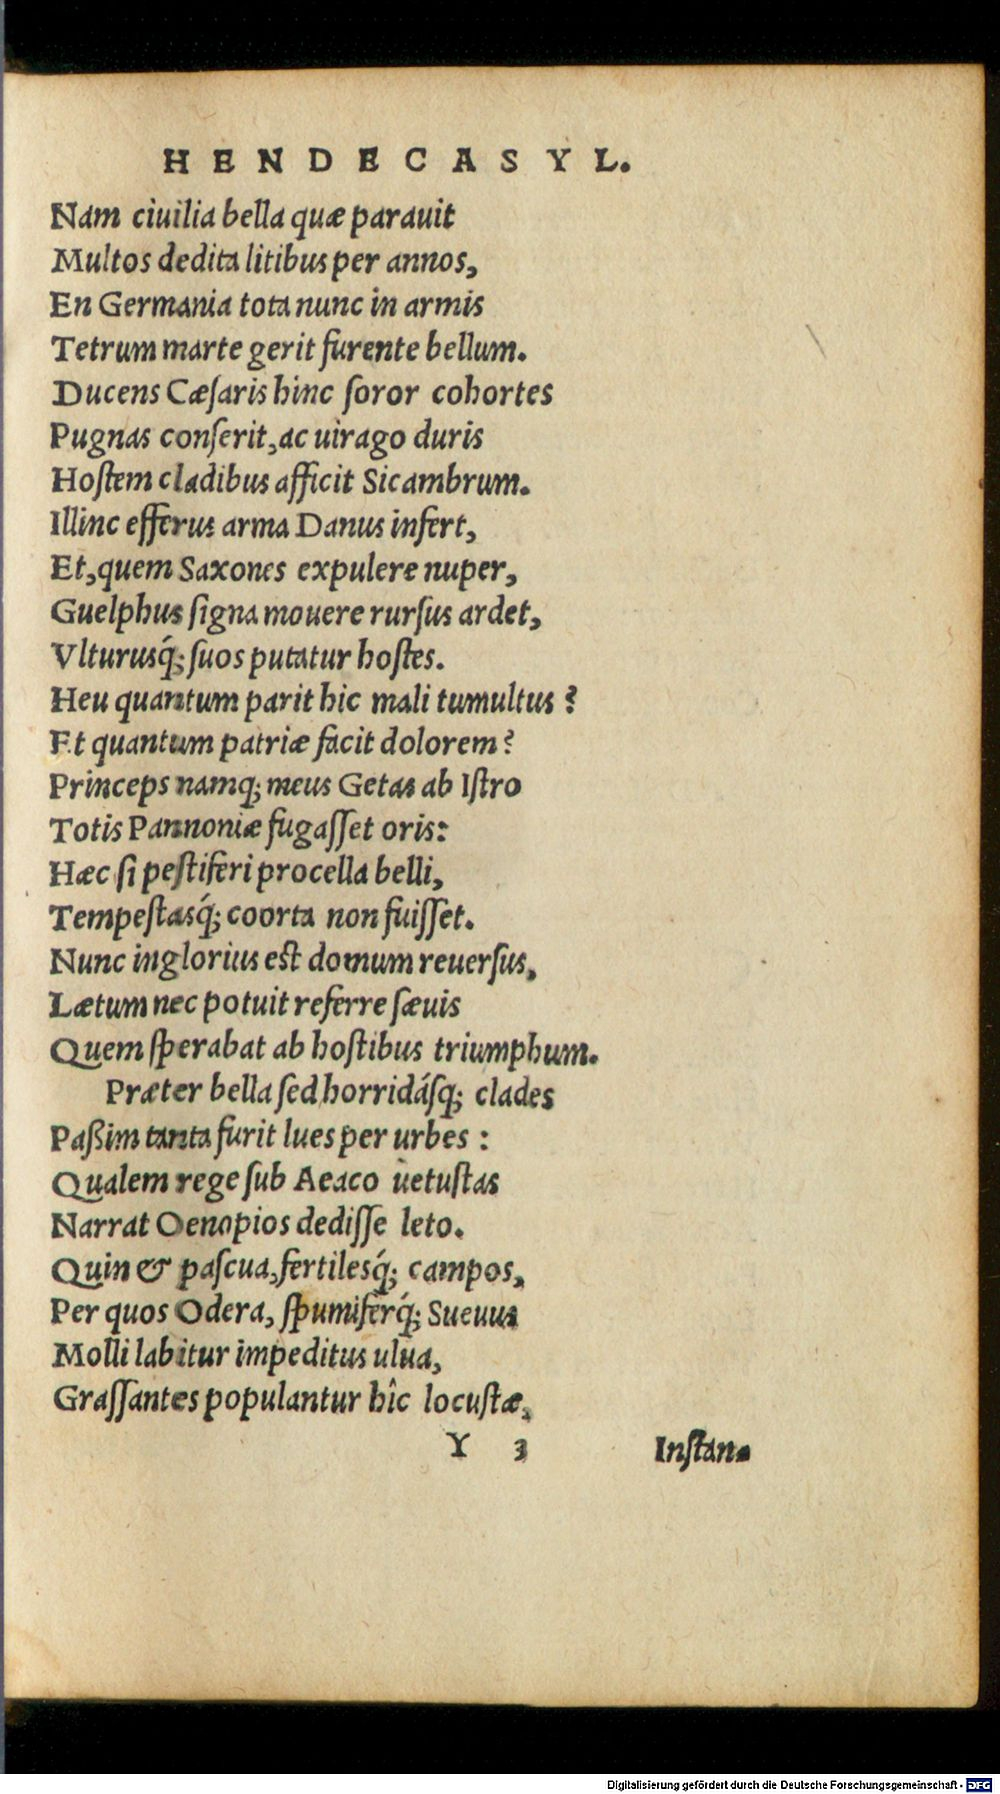 HENDECASYL.
Nam ciuilia bella quæ parauit
Multos dedita litibus per annos,
En Germania tota nunc in armis
Tetrum marte gerit furente bellum.
Ducens Cæſaris hinc ſoror cohortes
Pugnas conſerit, ac uirago duris
Hoſtem cladibus afficit Sicambrum.
Illinc efferus arma Danus infert,
Et, quem Saxones expulere nuper,
Guelphus ſigna mouere rurſus ardet,
Vlturusq́; ſuos putatur hoſtes.
Heu quantum parit hic mali tumultus?
Et quantum patriæ facit dolorem?
Princeps namq; meus Getas ab Iſtro
Totis Pannoniæ fugaſſet oris:
Hæc ſi peſtiferi procella belli,
Tempeſtasq́; coorta non fuiſſet.
Nunc inglorius eſt domum reuerſus,
Lætum nec potuit referre ſæuis
Quem ſperabat ab hoſtibus triumphum.
Præter bella ſed horridáſq; clades
Paßim tanta furit lues per urbes:
Qualem rege ſub Aeaco uetuſtas
Narrat Oenopios dediſſe leto.
Quin & paſcua, fertilesq́; campos,
Per quos Odera, ſpumiferq́; Sueuus
Molli labitur impeditus ulua,
Graſſantes populantur hîc locuſtæ,
Y 3 Inſtan-
Digitalisierung gefördert durch die Deutsche Forschungsgemeinschaft - DFG